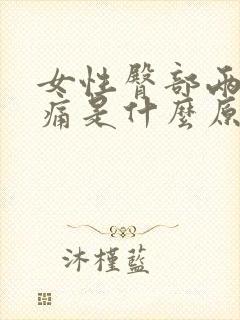 女性臀部兩
痛是什麼原
沐槿藍